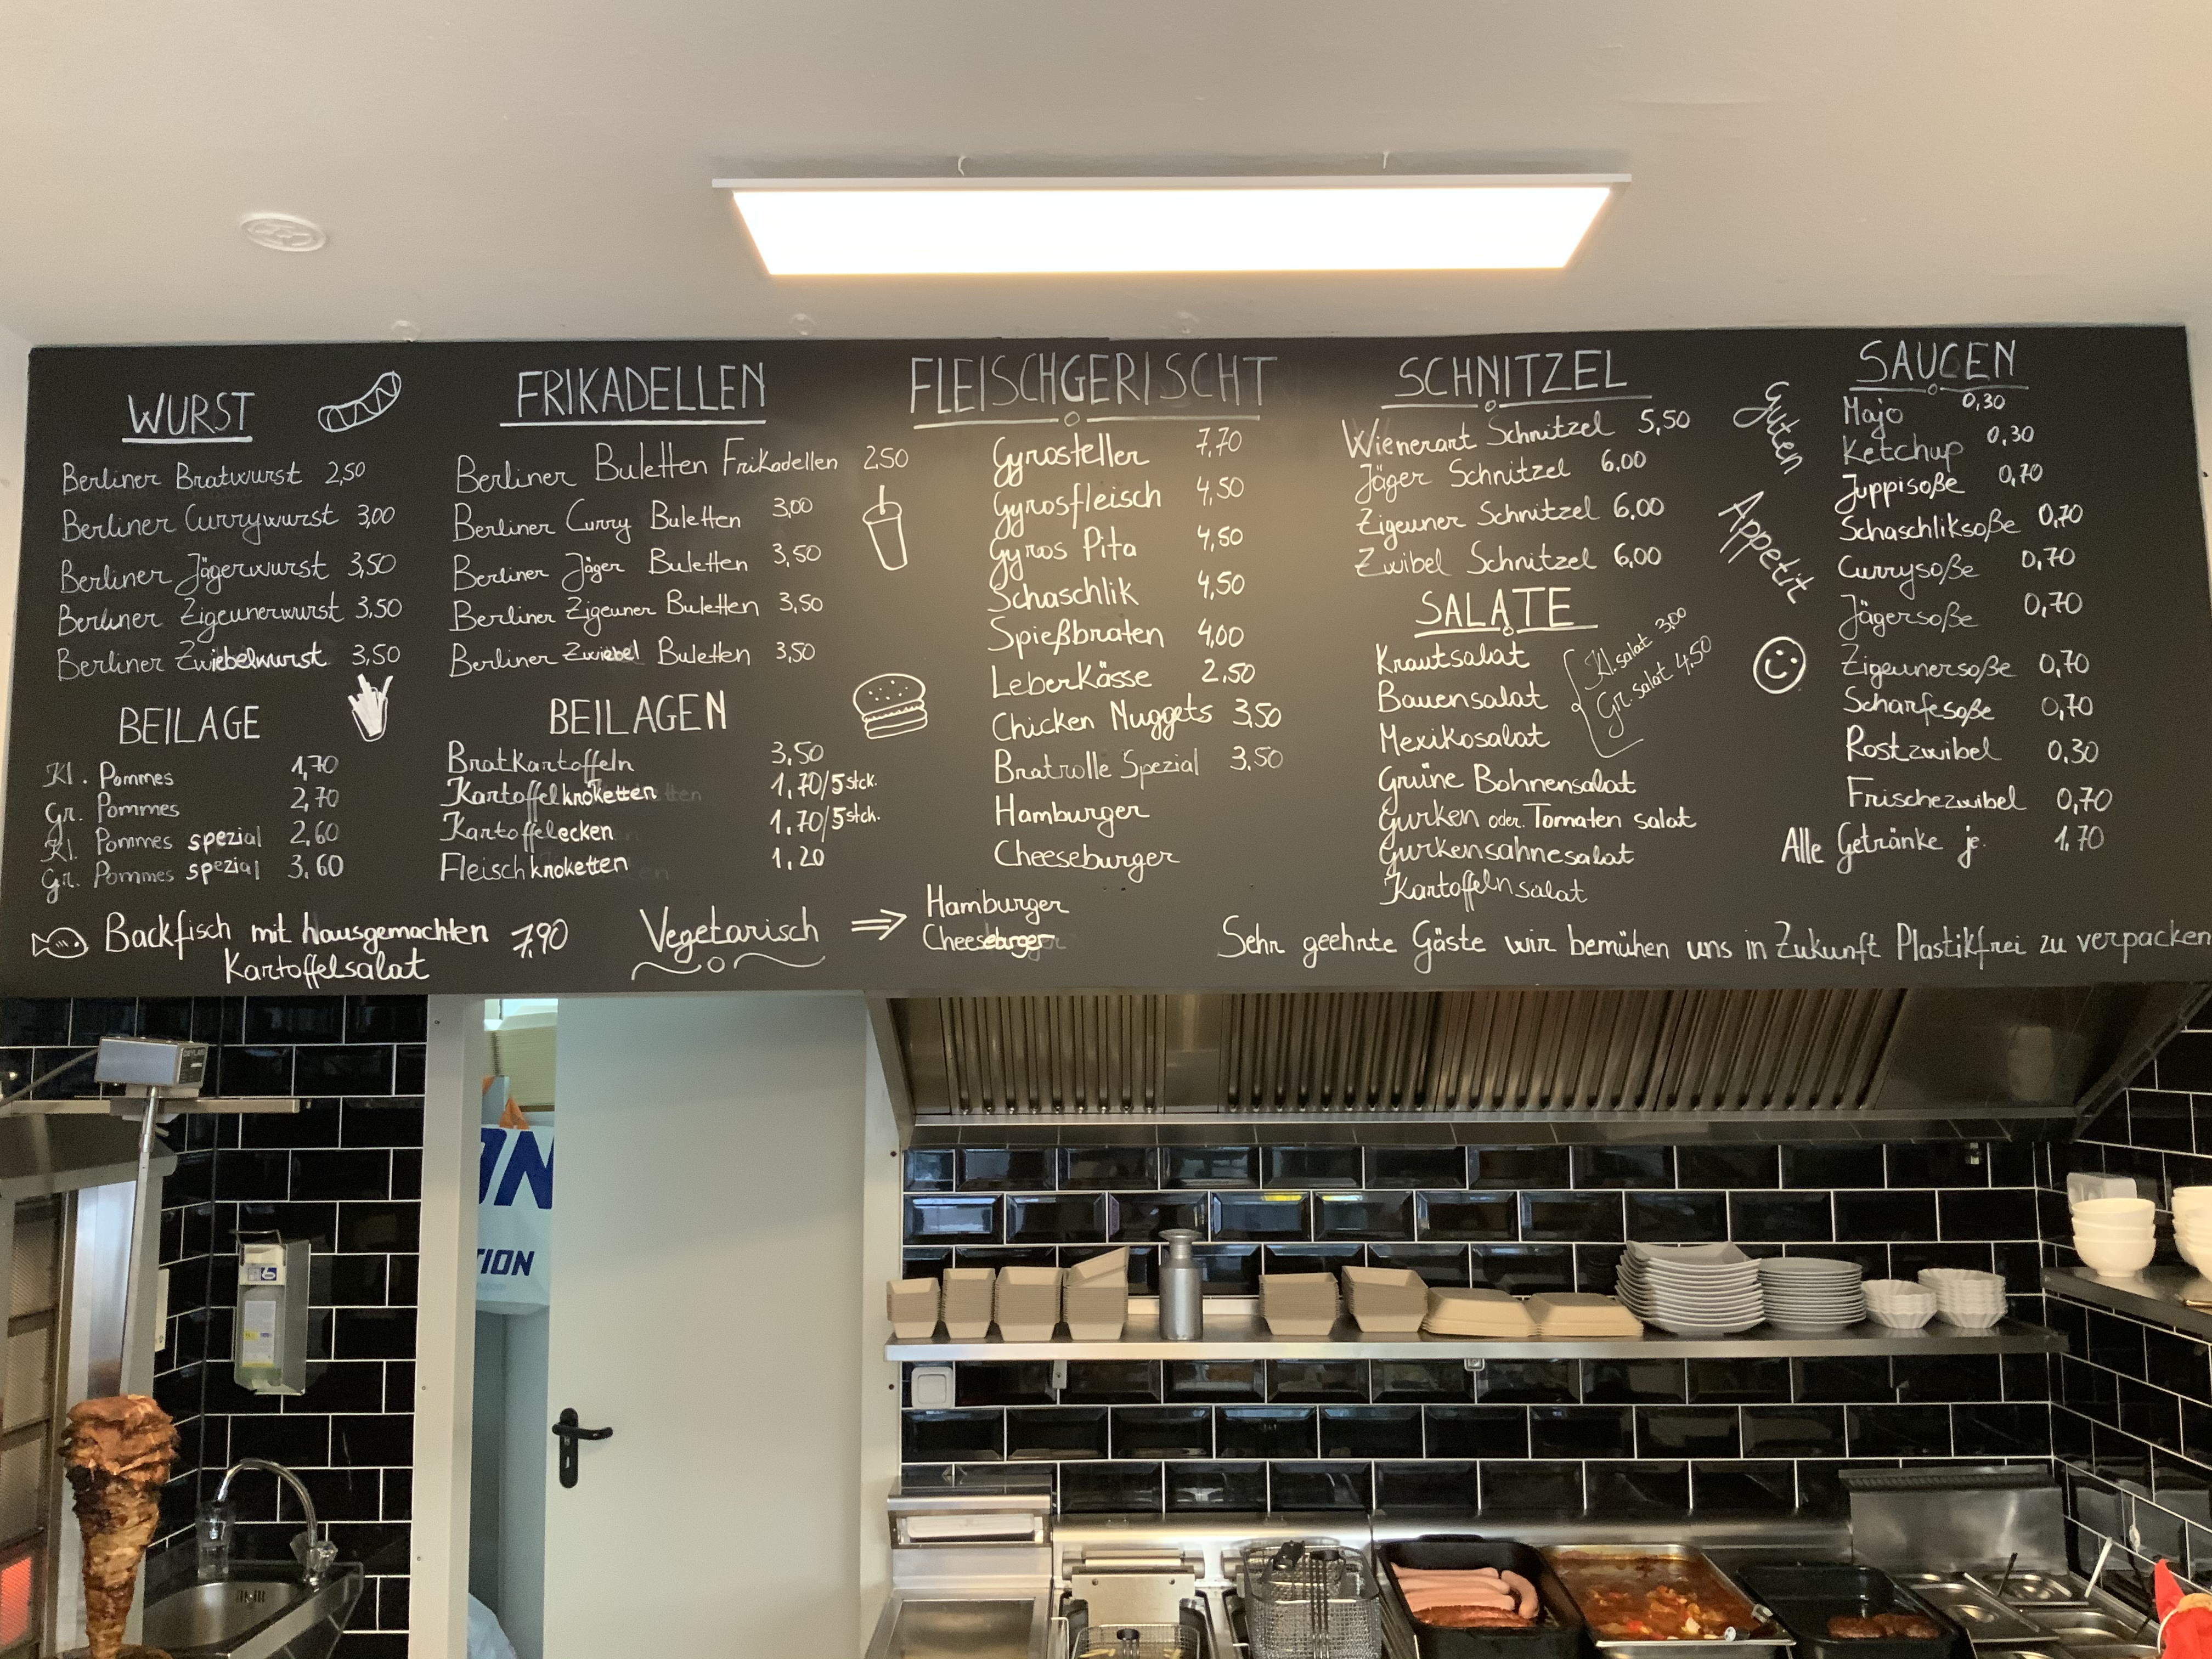 WURST
Berliner Bratwurst 2,50
Berliner Currywurst 3,00
Berliner Jägerwurst 3,50
Berliner Zigeunerwurst 3,50
Berliner Zwiebelwurst 3,50
BEILAGE
Kl. Pommes 1,70
Gr. Pommes 2,70
Kl. Pommes spezial 2,60
Gr. Pommes spezial 3,60
Backfisch mit hausgemachten 7,90
Kartoffelsalat
FRIKADELLEN
Berliner Buletten Frikadellen 2,50
Berliner Curry Buletten 3,00
Berliner Jäger Buletten 3,50
Berliner Zigeuner Buletten 3,50
Berliner Zwiebel Buletten 3,50
BEILAGEN
Bratkartoffeln 3,50
Kartoffelknoketten 1,70/5stck.
Kartoffelecken 1,70/5stck.
Fleischknoketten 1,20
Vegetarisch ⇒ Hamburger
Cheeseburger
FLEISCHGERISCHT
Gyrosteller 7,70
Gyrosfleisch 4,50
Gyros Pita 4,50
Schaschlik 4,50
Spießbraten 4,00
Leberkässe 2,50
Chicken Nuggets 3,50
Bratrolle Spezial 3,50
Hamburger
Cheeseburger
SCHNITZEL
Wienerart Schnitzel 5,50
Jäger Schnitzel 6,00
Zigeuner Schnitzel 6,00
Zwibel Schnitzel 6,00
SALATE
Krautsalat
Bauensalat
Mexikosalat
Kl. salat 3,00
Gr. salat 4,50
Grüne Bohnensalat
Gurken oder Tomaten salat
Gurkensahnesalat
Kartoffelnsalat
Guten
Appetit
SAUCEN
Majo 0,30
Ketchup 0,30
Juppisoße 0,70
Schaschliksoße 0,70
Currysoße 0,70
Jägersoße 0,70
Zigeunersoße 0,70
Scharfesoße 0,70
Rostzwibel 0,30
Frischezwibel 0,70
Alle Getränke je. 1,70
Sehr geehrte Gäste wir bemühen uns in Zukunft Plastikfrei zu verpacken
ON
TION